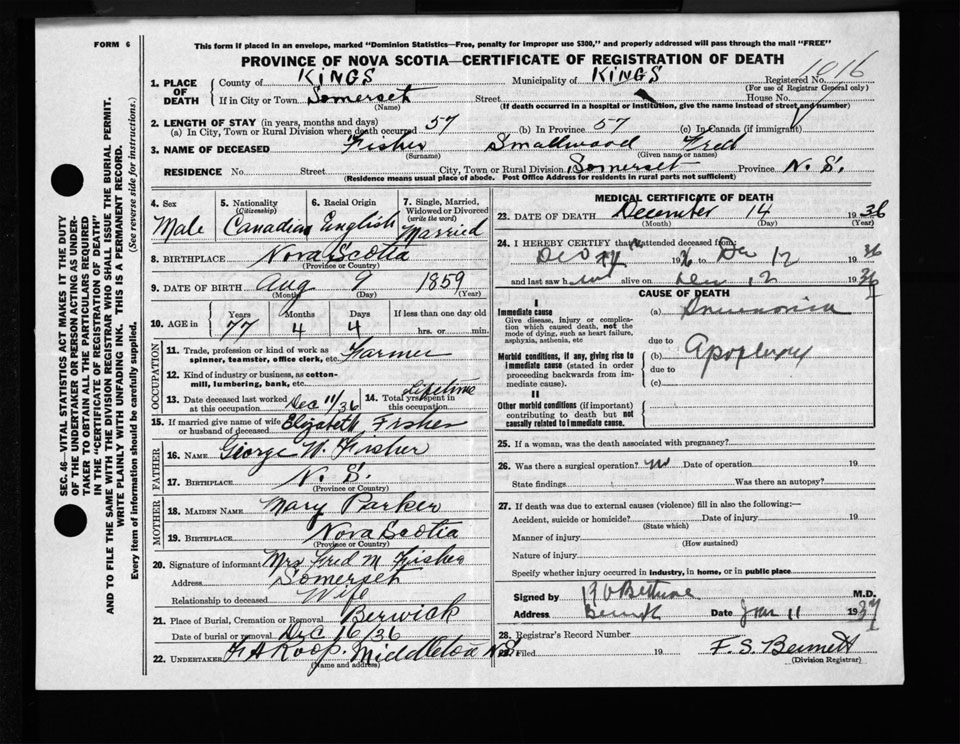 FORM 6
This form if placed in an envelope, marked "Dominion Statistics—Free, penalty for improper use $300," and properly addressed will pass through the mail "FREE"
PROVINCE OF NOVA SCOTIA—CERTIFICATE OF REGISTRATION OF DEATH
1. PLACE OF DEATH County of KINGS Municipality of KINGS Registered No. 1916
(For use of Registrar General only)
If in City or Town Somerset Street House No.
(Name) (If death occurred in a hospital or institution, give the name instead of street and number)
2. LENGTH OF STAY (in years, months and days)
(a) In City, Town or Rural Division where death occurred 57 (b) In Province 57 (c) In Canada (if immigrant)
3. NAME OF DECEASED Fisher Smallwood Fred
(Surname) (Given name or names)
RESIDENCE No. Street City, Town or Rural Division Somerset Province N.S.
(Residence means usual place of abode. Post Office Address for residents in rural parts not sufficient)
SEC. 46—VITAL STATISTICS ACT MAKES IT THE DUTY
OF THE UNDERTAKER OR PERSON ACTING AS UNDER-
TAKER TO OBTAIN ALL THE PARTICULARS REQUIRED
IN THE "CERTIFICATE OF REGISTRATION OF DEATH"
AND TO FILE THE SAME WITH THE DIVISION REGISTRAR WHO SHALL ISSUE THE BURIAL PERMIT.
WRITE PLAINLY WITH UNFADING INK. THIS IS A PERMANENT RECORD.
Every item of information should be carefully supplied. (See reverse side for instructions.)
4. Sex Male
5. Nationality (Citizenship) Canadian
6. Racial Origin English
7. Single, Married, Widowed or Divorced (write the word) Married
8. BIRTHPLACE Nova Scotia
(Province or Country)
9. DATE OF BIRTH Aug 9 1859
(Month) (Day) (Year)
10. AGE in Years Months Days If less than one day old
77 4 4 hrs. or min.
OCCUPATION
11. Trade, profession or kind of work as spinner, teamster, office clerk, etc. Farmer
12. Kind of industry or business, as cotton-mill, lumbering, bank, etc.
13. Date deceased last worked at this occupation Dec 11/36
14. Total yrs. spent in this occupation Lifetime
15. If married give name of wife or husband of deceased Elizabeth Fisher
FATHER
16. NAME George W. Fisher
17. BIRTHPLACE N.S.
(Province or Country)
MOTHER
18. MAIDEN NAME Mary Parker
19. BIRTHPLACE Nova Scotia
(Province or Country)
20. Signature of informant Mrs Fred M Fisher
Address Somerset
Relationship to deceased Wife
21. Place of Burial, Cremation or Removal Berwick
Date of burial or removal Dec 16/36
22. UNDERTAKER Roop. Middleton N.S.
(Name and address)
MEDICAL CERTIFICATE OF DEATH
23. DATE OF DEATH December 14 1936
(Month) (Day) (Year)
24. I HEREBY CERTIFY that I attended deceased from:
to Dec 12 1936
and last saw h alive on Dec 12 1936
CAUSE OF DEATH
I
Immediate cause
Give disease, injury or complication which caused death, not the mode of dying, such as heart failure, asphyxia, asthenia, etc
(a) Pneumonia
due to
Morbid conditions, if any, giving rise to immediate cause (stated in order proceeding backwards from immediate cause).
(b) Apoplexy
due to
(c)
II
Other morbid conditions (if important) contributing to death but not causally related to immediate cause.
25. If a woman, was the death associated with pregnancy?
26. Was there a surgical operation? no Date of operation 19
State findings Was there an autopsy?
27. If death was due to external causes (violence) fill in also the following:—
Accident, suicide or homicide? Date of injury 19
(State which)
Manner of injury
(How sustained)
Nature of injury
Specify whether injury occurred in industry, in home, or in public place
Signed by Bethune M.D.
Address Berwick Date Jan 11 1937
28. Registrar's Record Number
29. Filed 19 F. S. Bennett
(Division Registrar)